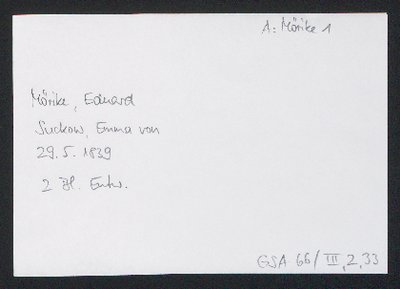 A: Mörike 1
Mörike, Eduard
Suckow, Emma von
29.5.1839
2 Bl. Entw.
GSA 66/III,2,33